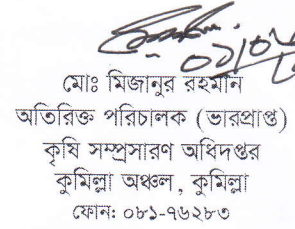 ০১/০৮
মোঃ মিজানুর রহমান
অতিরিক্ত পরিচালক (ভারপ্রাপ্ত)
কৃষি সম্প্রসারণ অধিদপ্তর
কুমিল্লা অঞ্চল, কুমিল্লা
ফোন: ০৮১-৭৬২৮৩